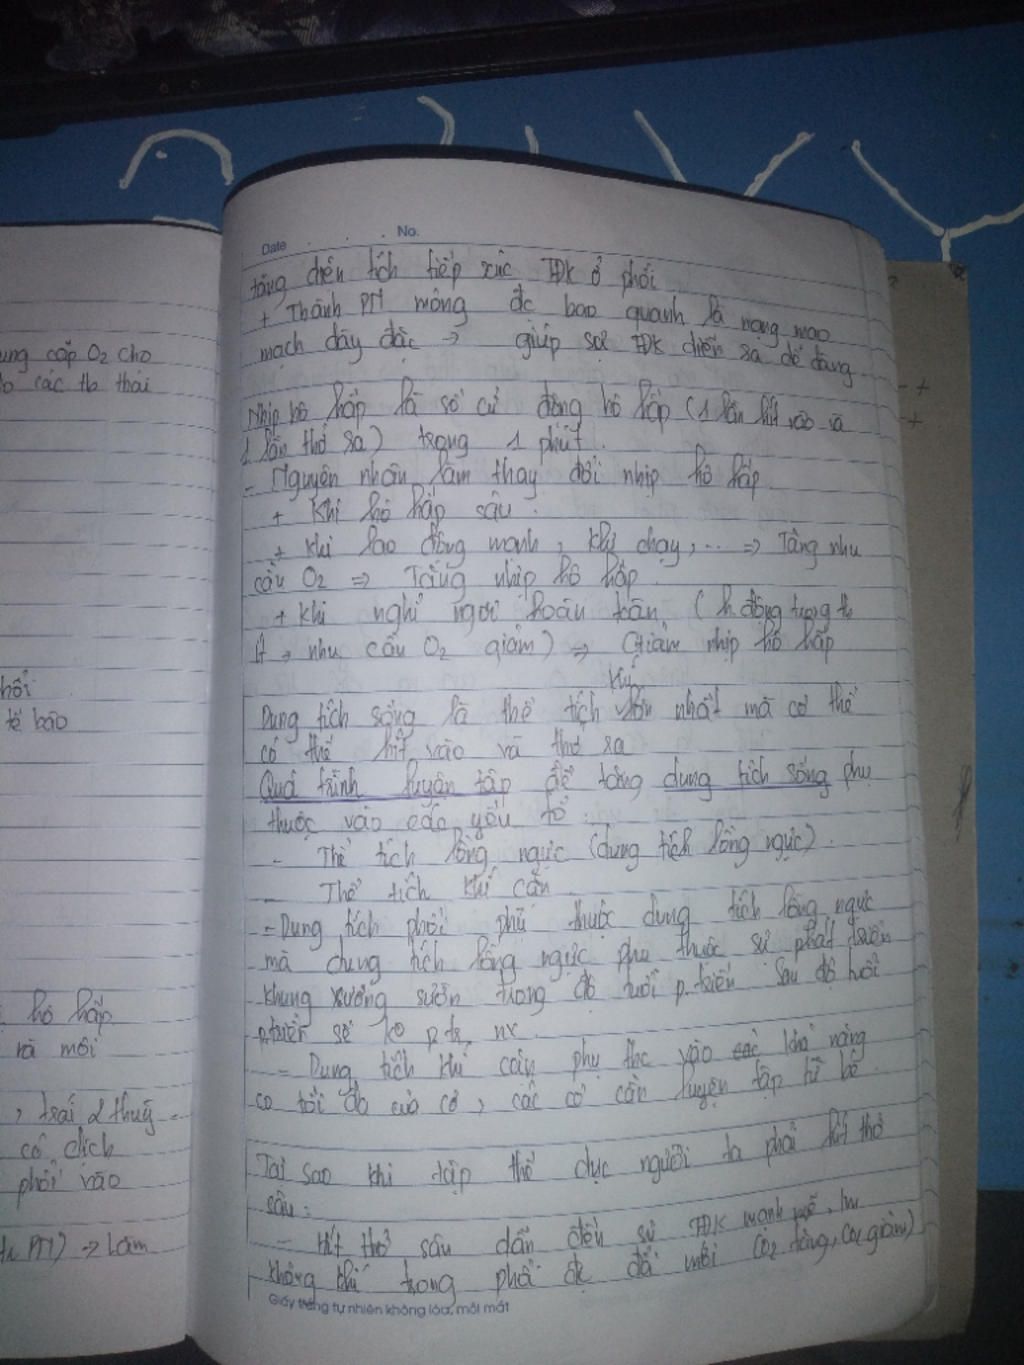 ung cấp O2 cho
o các tb thải
hổi
tế bào
hô hấp
ra môi
, trái 2 thuỳ
có dịch
phổi vào
PN) -> Làm
Date No.
tăng diện tích tiếp xúc TĐK ở phổi
+ Thành PN mỏng đc bao quanh là mạng mao
mạch dày đặc -> giúp sự TĐK diễn ra dễ dàng
Nhịp hô hấp là số cử động hô hấp (1 lần hít vào và
1 lần thở ra) trong 1 phút.
- Nguyên nhân làm thay đổi nhịp hô hấp
+ Khi hô hấp sâu.
+ Khi lao động mạnh, khi chạy, ... => Tăng nhu
cầu O2 => Tăng nhịp hô hấp
+ Khi nghỉ ngơi hoàn toàn (h.động trong tb
ít, nhu cầu O2 giảm) => Giảm nhịp hô hấp
khí
Dung tích sống là thể tích lớn nhất mà cơ thể
có thể hít vào và thở ra
Quá trình luyện tập để tăng dung tích sống phụ
thuộc vào các yếu tố:
- Thể tích lồng ngực (dung tích lồng ngực).
- Thể tích khí cặn
- Dung tích phổi phụ thuộc dung tích lồng ngực
mà dung tích lồng ngực phụ thuộc sự phát triển
khung xương sườn trong độ tuổi p.triển sau độ tuổi
p.triển sẽ ko p.tr nx
- Dung tích khí cặn phụ thc vào các khả năng
co tối đa của cơ, các cơ cần luyện tập từ bé.
Tại sao khi tập thể dục người ta phải hít thở
sâu:
- Hít thở sâu dẫn đến sự TĐK mạnh mẽ,
không khí trong phổi đc đổi mới (O2 tăng, CO2 giảm)
Giấy trắng tự nhiên không lóa, mỏi mắt